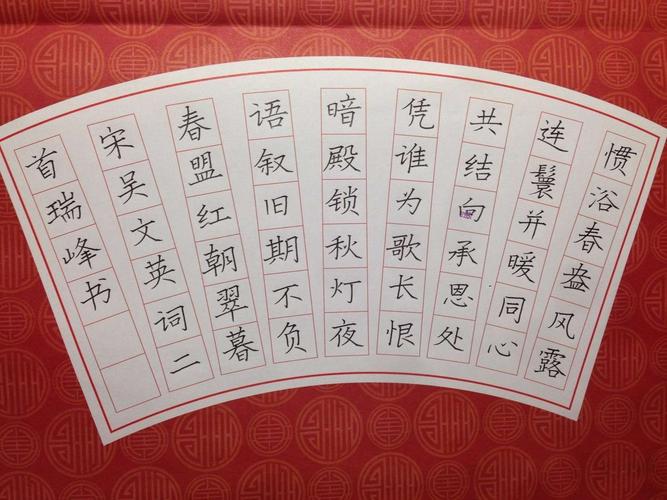 惯浴春盎风露
连鬟并暖同心
共结向承恩处
凭谁为歌长恨
暗殿锁秋灯夜
语叙旧期不负
春盟红朝翠暮
宋吴文英词二
首瑞峰书